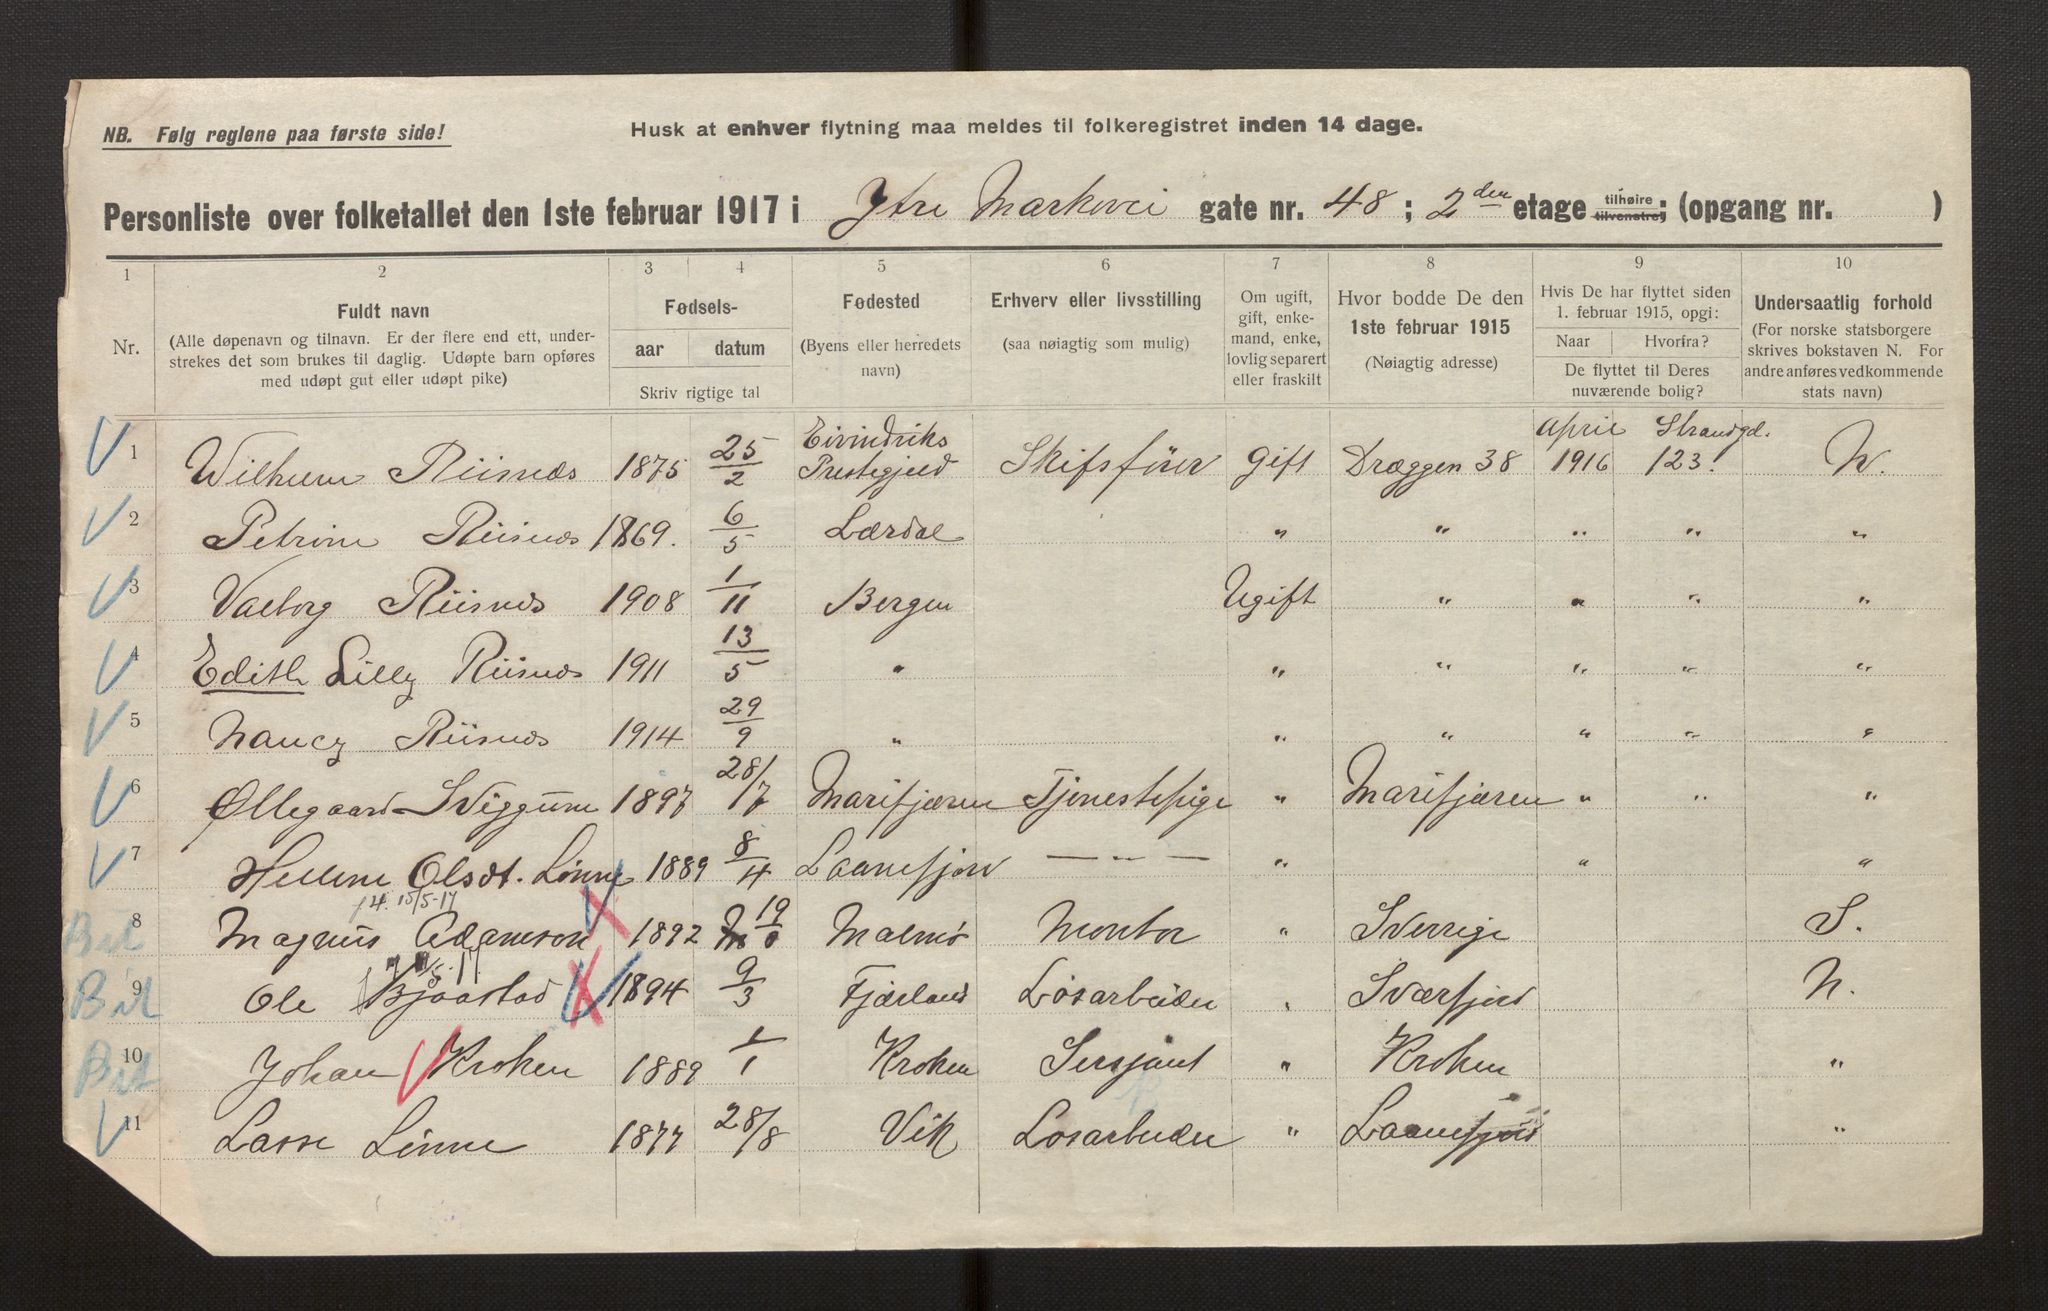 NB. Følg reglene paa første side!
Husk at enhver flytning maa meldes til folkeregistret inden 14 dage.
Personliste over folketallet den 1ste februar 1917 i Ytre Markevei gate nr. 48 ; 2den etage tilhøire tilvenstre ; (opgang nr. )
1 2 3 4 5 6 7 8 9 10
Nr.
Fuldt navn
(Alle døpenavn og tilnavn. Er der flere end ett, under-
strekes det som brukes til daglig. Udøpte barn opføres
med udøpt gut eller udøpt pike)
Fødsels-
aar datum
Skriv rigtige tal
Fødested
(Byens eller herredets
navn)
Erhverv eller livsstilling
(saa nøiagtig som mulig)
Om ugift,
gift, enke-
mand, enke,
lovlig separert
eller fraskilt
Hvor bodde De den
1ste februar 1915
(Nøiagtig adresse)
Hvis De har flyttet siden
1. februar 1915, opgi:
Naar Hvorfra?
De flyttet til Deres
nuværende bolig?
Undersaatlig forhold
(For norske statsborgere
skrives bokstaven N. For
andre anføres vedkommende
stats navn)
Eivindviks April Strandgd.
1 Wilhelm Riisnæs 1875 25/2 Prestegjeld Skifsfører Gift Dræggen 38 1916 123. N.
2 Petrine Riisnæs 1869. 6/5 Lærdal " " " " "
3 Valborg Riisnæs 1908 1/11 Bergen Ugift " " " "
4 Edith Lilly Riisnæs 1911 13/5 " " " " " "
5 Nancy Riisnæs 1914 29/9 " " " " " "
6 Ollegaard Sviggum 1897 28/7 Marifjæren Tjenestepige " Marifjæren " " "
7 Hellene Olsdt. Linne 1889 8/4 Laanefjord — " — " " "
14. 15/5-17
Bil 8 Magnus Adamson 1892 19/ Malmø Montør " Sverrige S.
/5-17
Bil 9 Ole Bjaastad 1894 9/3 Fjærland Løsarbeider " Sværfjord N.
Bil 10 Johan Kroken 1889 1/1 Kroken Sersjant " Kroken "
11 Lasse Linne 1877 28/8 Vik Løsarbeider " Laanefjord "